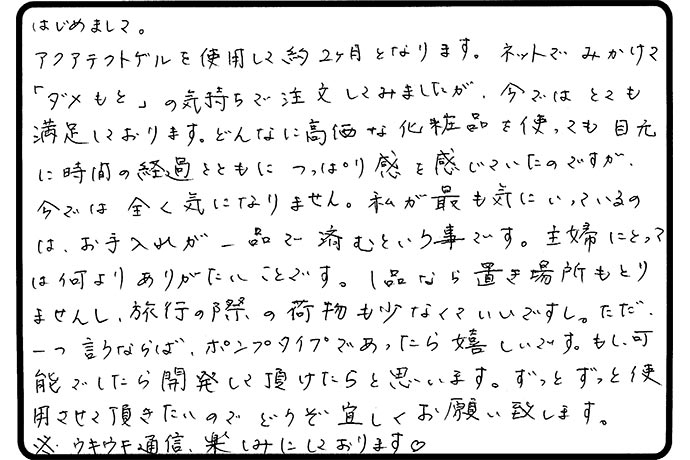 はじめまして。
アクアテクトゲルを使用して約2ヶ月となります。ネットでみかけて
「ダメもと」の気持ちで注文してみましたが、今ではとても
満足しております。どんなに高価な化粧品を使っても目元
に時間の経過とともにつっぱり感を感じていたのですが、
今では全く気になりません。私が最も気にいっているの
は、お手入れが一品で済むという事です。主婦にとって
は何よりありがたいことです。1品なら置き場所もとり
ませんし、旅行の際の荷物も少なくていいですし。ただ、
一つ言うならば、ポンプタイプであったら嬉しいです。もし、可
能でしたら開発して頂けたらと思います。ずっとずっと使
用させて頂きたいのでどうぞ宜しくお願い致します。
※ウキウキ通信、楽しみにしております♡